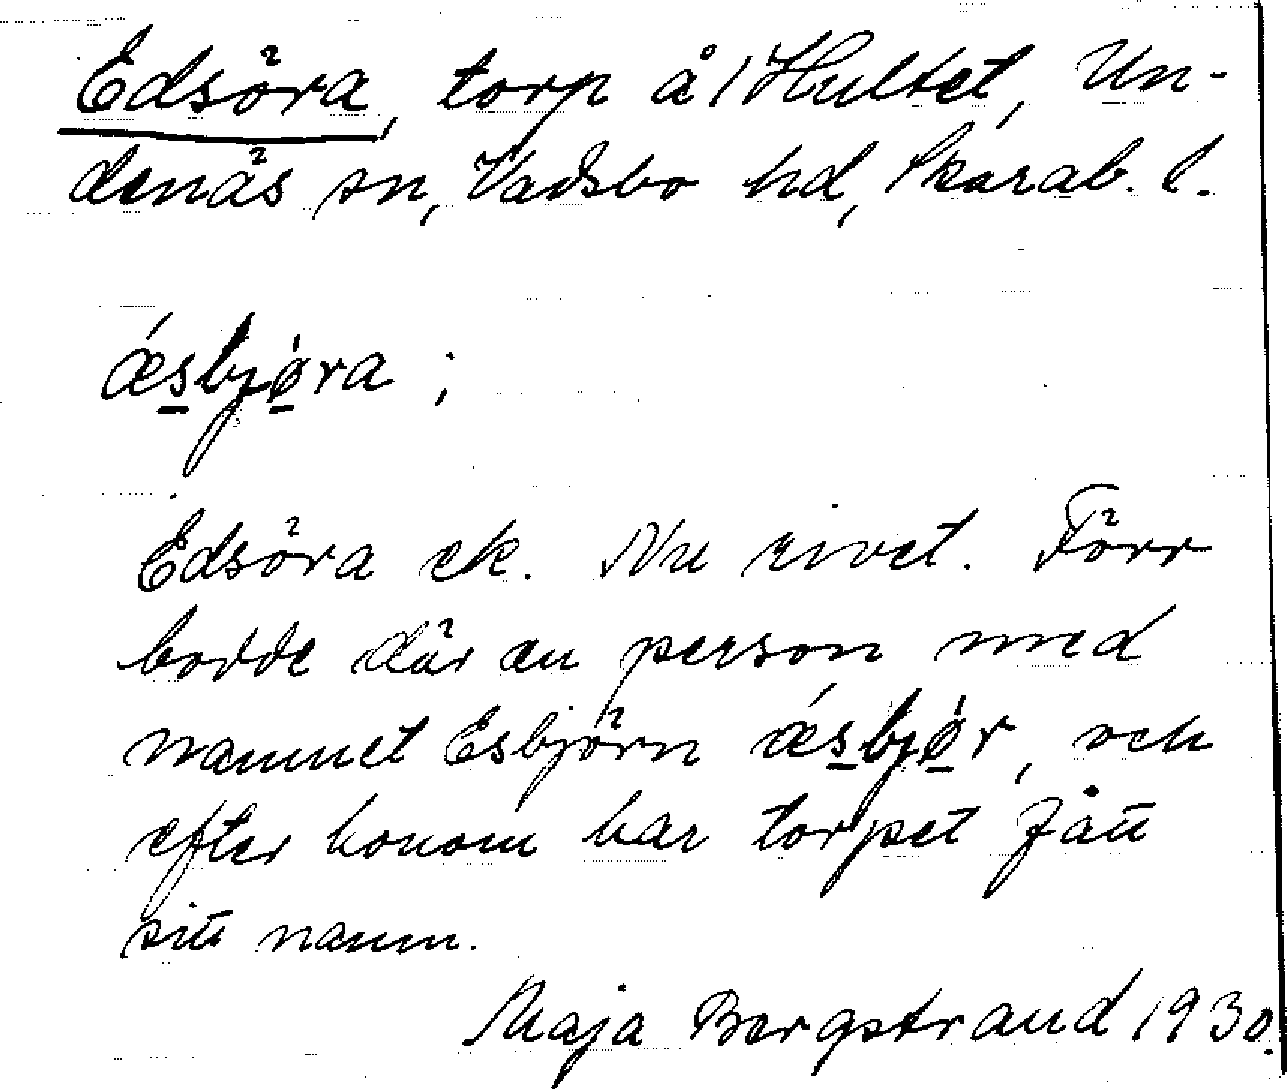 Edsöra, torp å 1 Hultet, Un-
denäs sn, Vadsbo hd, Skarab. l.
ǽsbjǿra ;
Edsöra ek. Nu rivet. Förr
bodde där en person med
namnet Esbjörn ǽsbjǿr, och
efter honom har torpet fått
sitt namn.
Maja Bergstrand 1930.